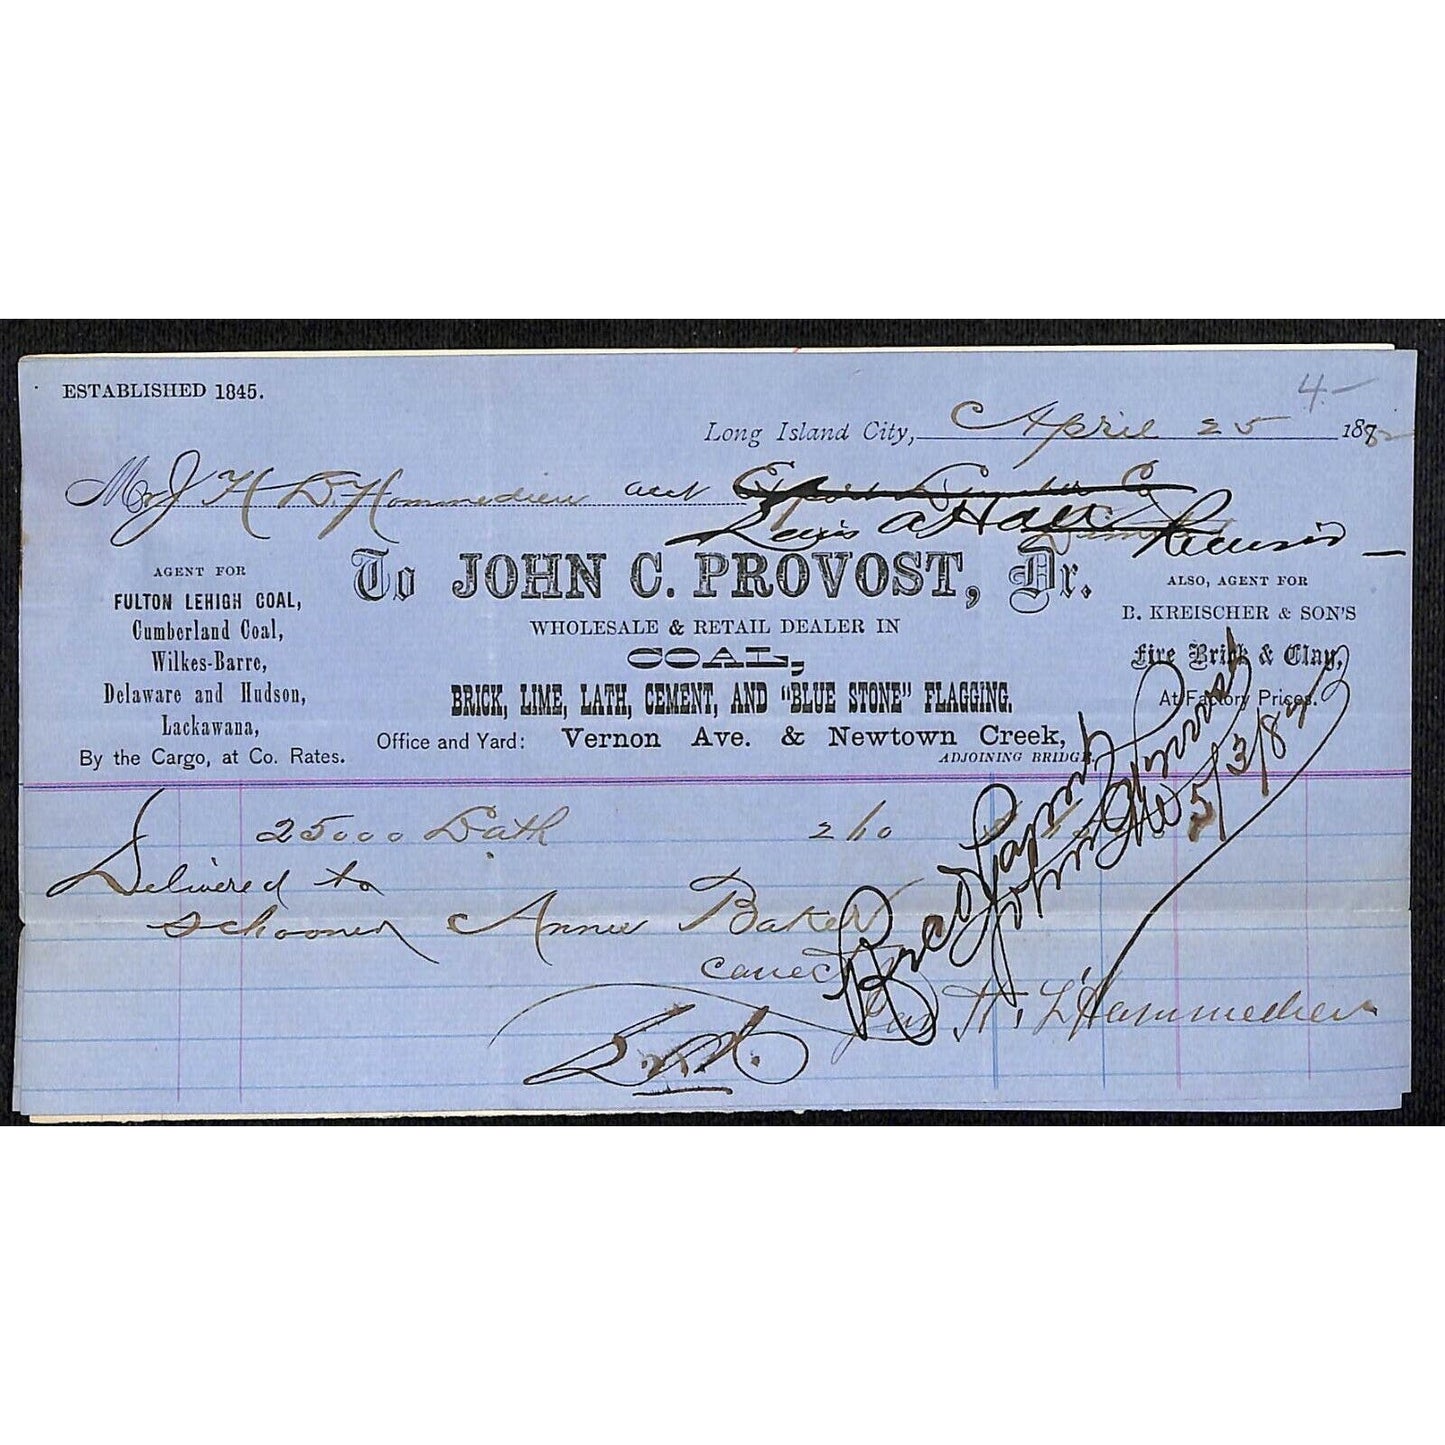 ESTABLISHED 1845.
4-
Long Island City, April 25 1882
Mr J H D. Hommedieu acct
Lewis A Hall
To JOHN C. PROVOST, Dr.
WHOLESALE & RETAIL DEALER IN
COAL,
BRICK, LIME, LATH, CEMENT, AND "BLUE STONE" FLAGGING.
Office and Yard: Vernon Ave. & Newtown Creek,
ADJOINING BRIDGE.
AGENT FOR
FULTON LEHIGH COAL,
Cumberland Coal,
Wilkes-Barre,
Delaware and Hudson,
Lackawana,
By the Cargo, at Co. Rates.
ALSO, AGENT FOR
B. KREISCHER & SON'S
Fire Brick & Clay,
At Factory Prices.
25000 Lath 2 10
Delivered to
schooner Annie Baker
Recd Paymt
John C Provost
5/3/82
Jas H. L'Hommedieu